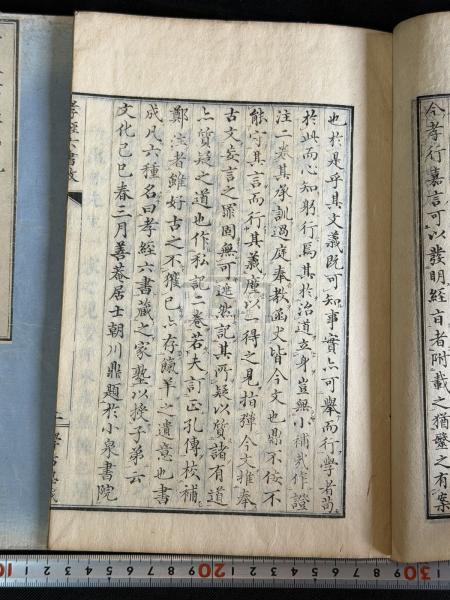 今孝行嘉言可以發明經旨者附載之猶鑿之有案
也於是乎其文義既可知事實亦可舉而行學者尚
於此而心知躬行焉其於治道立身豈無小補哉作證
注二卷其承訓過庭奉教函丈皆今文也鼎不按不
能守其言而行其義廑以一得之見指彈今文推奉
古文妄言之罪固無可逃然記其所疑以質諸有道
亦質疑之道也作私記二卷若夫訂正孔傳按補
鄭注者雖好古之不獲已亦存餼羊之遺意也書
成凡六種名曰孝經六書藏之家塾以授子弟云
文化己巳春三月善菴居士朝川鼎題於小泉書院
孝經六書敘
二
10 1 2 3 4 5 6 7 8 9 20 1 2 3 4 5 6 7 8 9 30